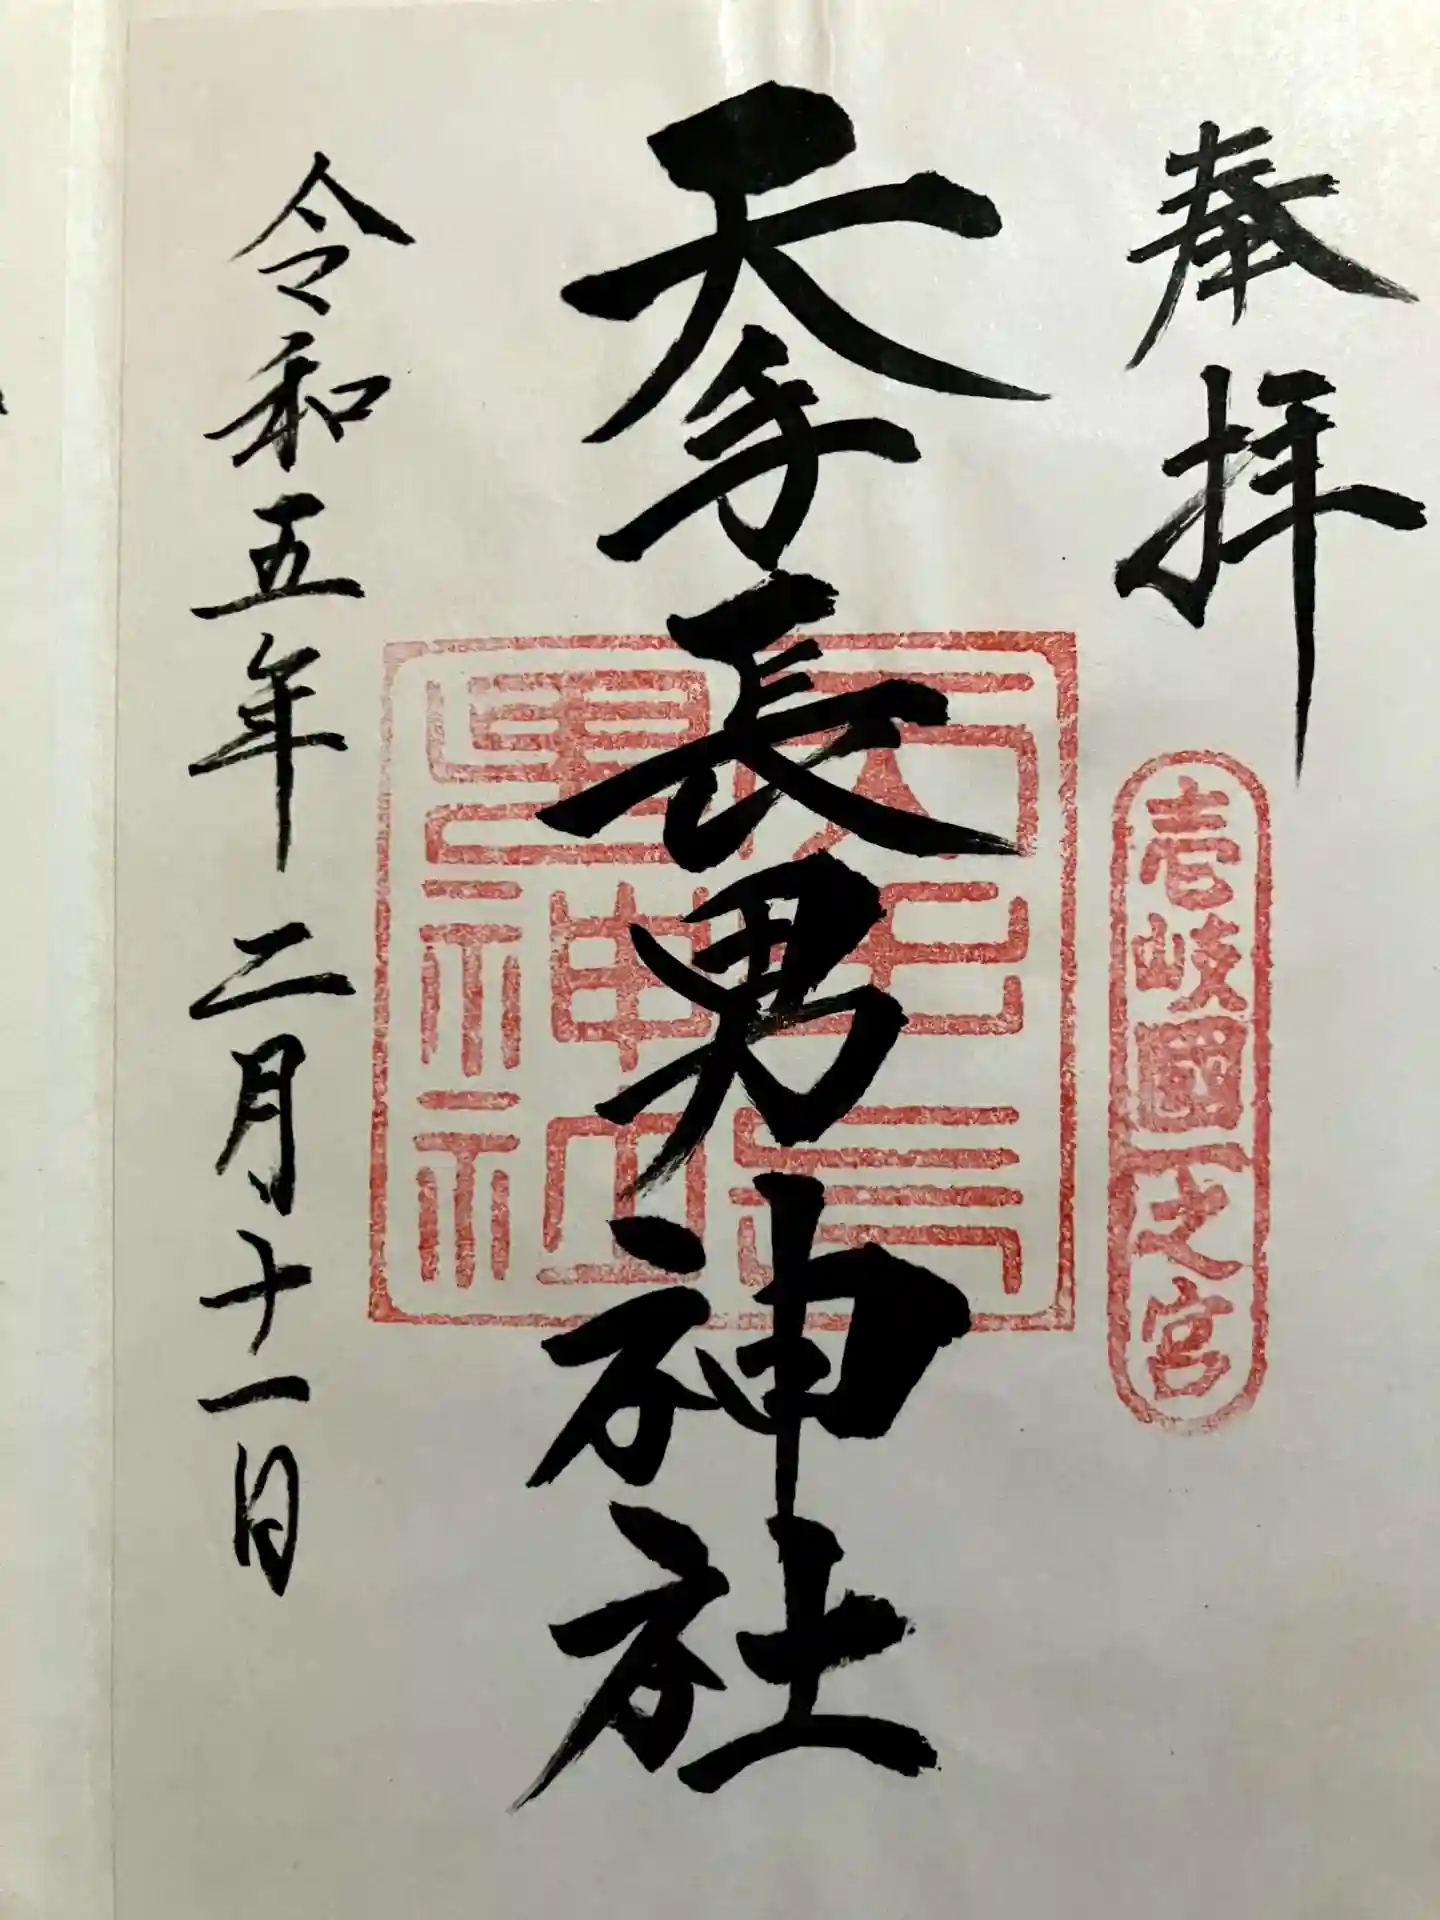 奉拝
壱岐國一之宮
天手長男神社
天手長
男神社
令和五年二月十一日